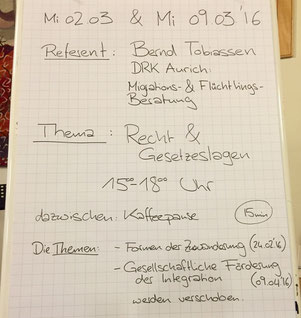 Mi 02.03 & Mi 09.03'16
Referent: Bernd Tobiassen
DRK Aurich
Migrations- & Flüchtlings-
Beratung
Thema: Recht &
Gesetzeslagen
15⁰⁰-18⁰⁰ Uhr
dazwischen: Kaffeepause 15min
Die Themen: - Formen der Zuwanderung (24.02'16)
- Gesellschaftliche Förderung
der Integration (09.04'16)
werden verschoben.